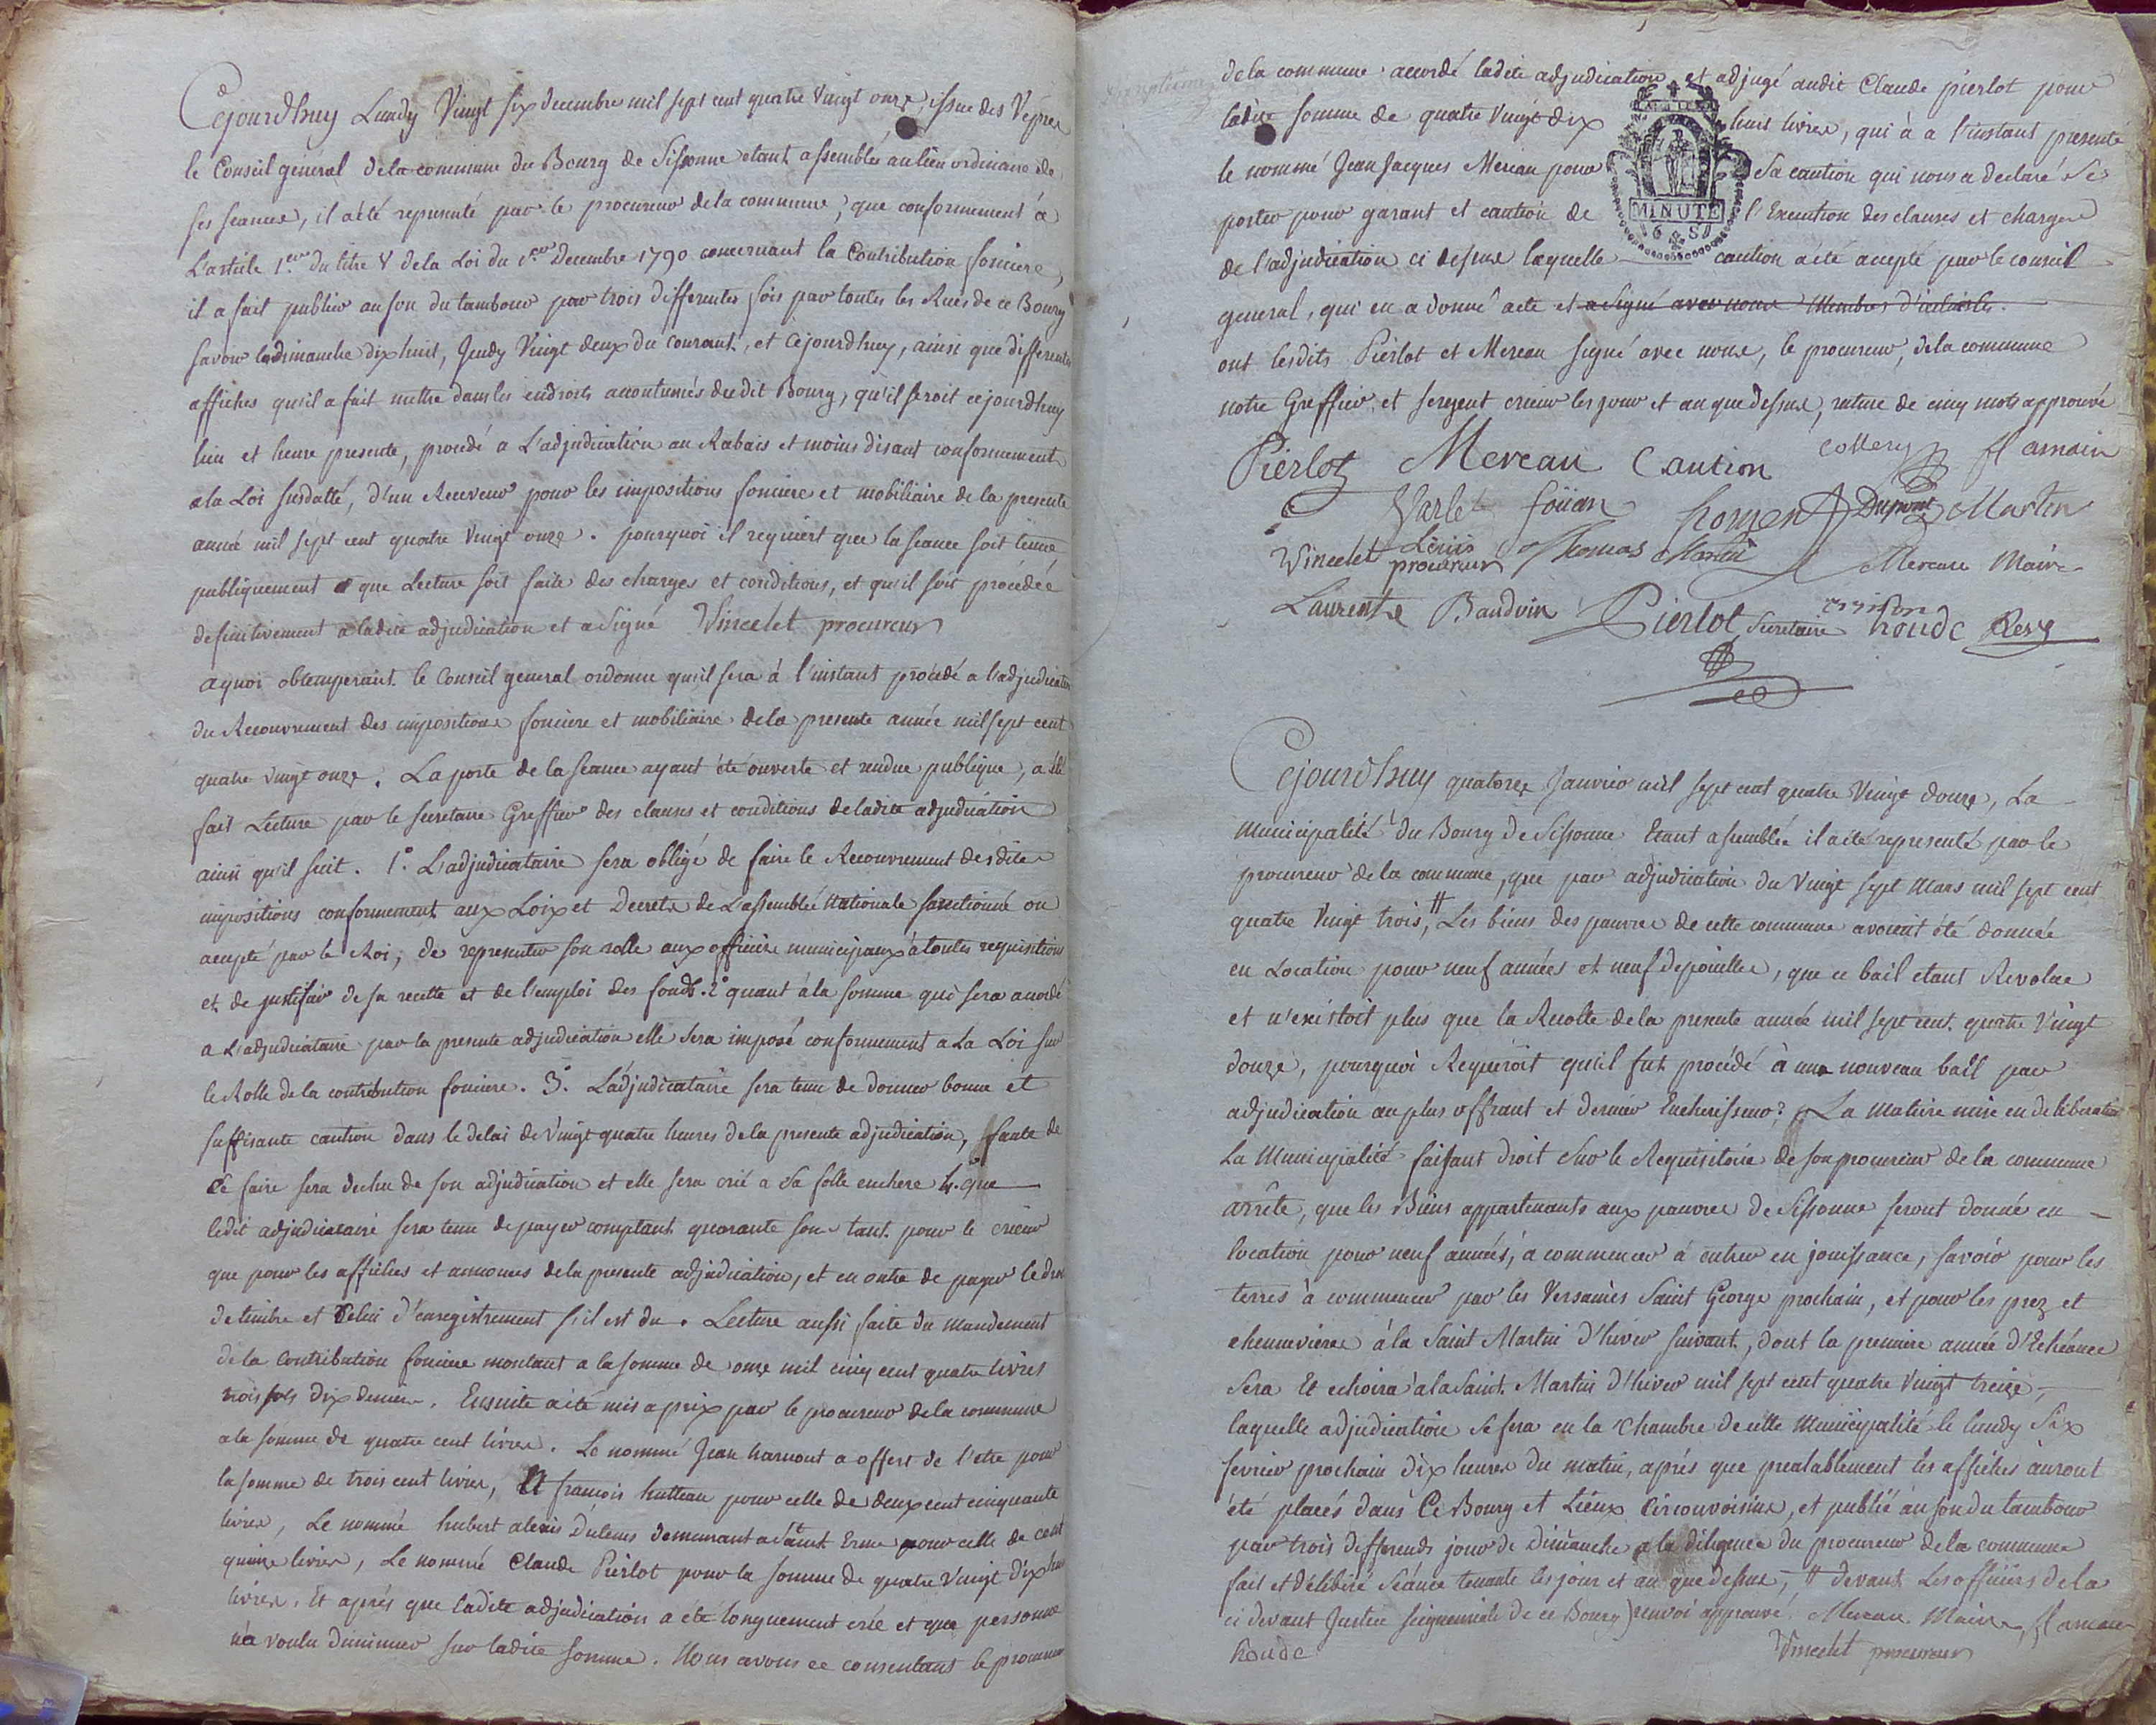 Cejourdhuy Lundy Vingt six decembre mil sept cent quatre vingt onze, issue des Vepres
le Conseil general dela commune du Bourg de Sissonne etant assemblée au lieu ordinaire de
ses seances, il a été representé par le procureur dela commune, que conformement à
L'article 1.er du titre V dela Loi du 1.er Decembre 1790 concernant la Contribution fonciere,
il a fait publier au son du tambour par trois differentes fois par toutes les Rues de ce Bourg
savoir ledimanche dix huit, Jeudy Vingt deux du courant, et cejourdhuy, ainsi que differentes
affiches qu'il a fait mettre dans les endroits accoutumés dudit Bourg, qu'il seroit cejourdhuy
lieu et heure presente, procédé a L'adjudication au Rabais et moins disant conformement
a la Loi susdatté, d'un Receveur pour les impositions fonciere et mobiliaire de la presente
année mil sept cent quatre vingt onze. pourquoi il requiert que la seance soit tenue
publiquement que Lecture soit faite des charges et conditions, et qu'il soit procédéé
definitivement a ladite adjudication et a signé Vincelet procureur
aquoi obtemperant le Conseil general ordonne qu'il sera à l'instant procédé a l'adjudication
du Recouvrement des impositions fonciere et mobiliaire dela presente année mil sept cent
quatre vingt onze. La porte de la seance ayant été ouverte et rendue publique, a été
fait Lecture par le secretaire Greffier des clauses et conditions deladite adjudication
ainsi qu'il suit. 1.° L'adjudicataire sera obligé de faire le Recouvrement desdites
impositions conformement aux Loix et Decrets de L'assemblée Nationale sanctionné ou
accepté par le Roi, de representer son rolle aux officiers municipaux à toutes requisitions
et de justifier de sa recette et de l'emploi des fonds. 2.° quant à la somme qui sera accordé
a L'adjudicataire par la presente adjudication elle sera imposé conformement a La Loi sur
le Rolle de la contribution fonciere. 3.° L'adjudicataire sera tenu de donner bonne et
suffisante caution dans le delai de Vingt quatre heures dela presente adjudication, faute de
ce faire sera dechu de son adjudication et elle sera crié a sa folle enchere 4.° que
ledit adjudicataire sera tenu de payer comptant quarante sous tant pour le crieur
que pour les affiches et annonces dela presente adjudication, et en outre de payer le droit
de timbre et celui d'enregistrement s'il est du. Lecture aussi faite du mandement
dela Contribution fonciere montant a la somme de onze mil cinq cent quatre livres
trois sols dix deniers. Ensuite a été mis a prix par le procureur dela commune
a la somme de quatre cent livres. Le nommé Jean harnout a offert de l'etre pour
la somme de trois cent livres, françois hutteau pour celle de deux cent cinquante
livres, Le nommé hubert alexis Dutems demeurant a Saint Erme pour celle de cent
quinze livres, Le nommé Claude Pierlot pour la somme de quatre Vingt Dix huit
livres. Et aprés que ladite adjudication a été longuement crié et que personne
n'a voulu diminuer sur ladite somme. Nous avons ce consentant le procureur
dela commune accordé ladite adjudication et adjugé audit Claude pierlot pour
ladite somme de quatre Vingt dix huit livres, qui à a l'instant presenté
le nommé Jean Jacques Mereau pour sa caution qui nous a declaré se
porter pour garant et caution de l'Execution des clauses et charges
MINUTE
6 S
de l'adjudication ci dessus laquelle caution a été accepté par le conseil
general, qui en a donné acte et a signé avec nous
ont lesdits Pierlot et Mereau signé avec nous, le procureur, dela commune
notre Greffier et sergent crieur les jour et an que dessus, rature de cinq mots approuvé
Pierlot Mereau Caution Collery flamain
Varlet foüan horyen Dupont Martin
Vincelet Louis procureur Thomas Martin Mereau Maire
Laurent Baudvin Pierlot Secretaire houde Resy
Cejourdhuy quatorze Janvier mil sept cent quatre Vingt douze, La
Municipalité du Bourg de Sissonne Etant assemblée il a été representé par le
procureur de la commune, que par adjudication du Vingt sept Mars mil sept cent
quatre Vingt trois, # Les biens des pauvres de cette commune avoient été données
en Location pour neuf années et neuf depouilles, que ce bail etant Revolue
et n'existoit plus que la Recolte dela presente année mil sept cent quatre Vingt
douze, pourquoi Requeroit qu'il fut procédé à une nouveau bail par
adjudication au plus offrant et dernier Encherisseur? La Matiere mise en deliberation
La Municipalité faisant droit sur le Requisitoire de son procureur de la commune
arrête, que les Biens appartenants aux pauvres de Sissonne seront donné en
location pour neuf années, a commencer à entrer en jouissance, savoir pour les
terres à commencer par les Versaines Saint George prochain, et pour les prez et
chenevieres à la Saint Martin d'hiver suivant, dont la premiere année d'Echéance
sera Et echoira a la Saint Martin d'hiver mil sept cent quatre Vingt treize,
laquelle adjudication se fera en la Chambre de cette Municipalité le lundy Six
fevrier prochain dix heures du matin, aprés que prealablement les affiches auront
été placés dans Ce Bourg et Lieux Circonvoisins, et publié au son du tambour
par trois differends jour de dimanche a la diligence du procureur dela commune
fait et délibéré Séance tenante les jour et an que dessus, # devant Les officiers de la
ci devant Justice seigneuriale de ce Bourg) renvoi approuvé. Mereau Maire, flamain
houde Vincelet procureur